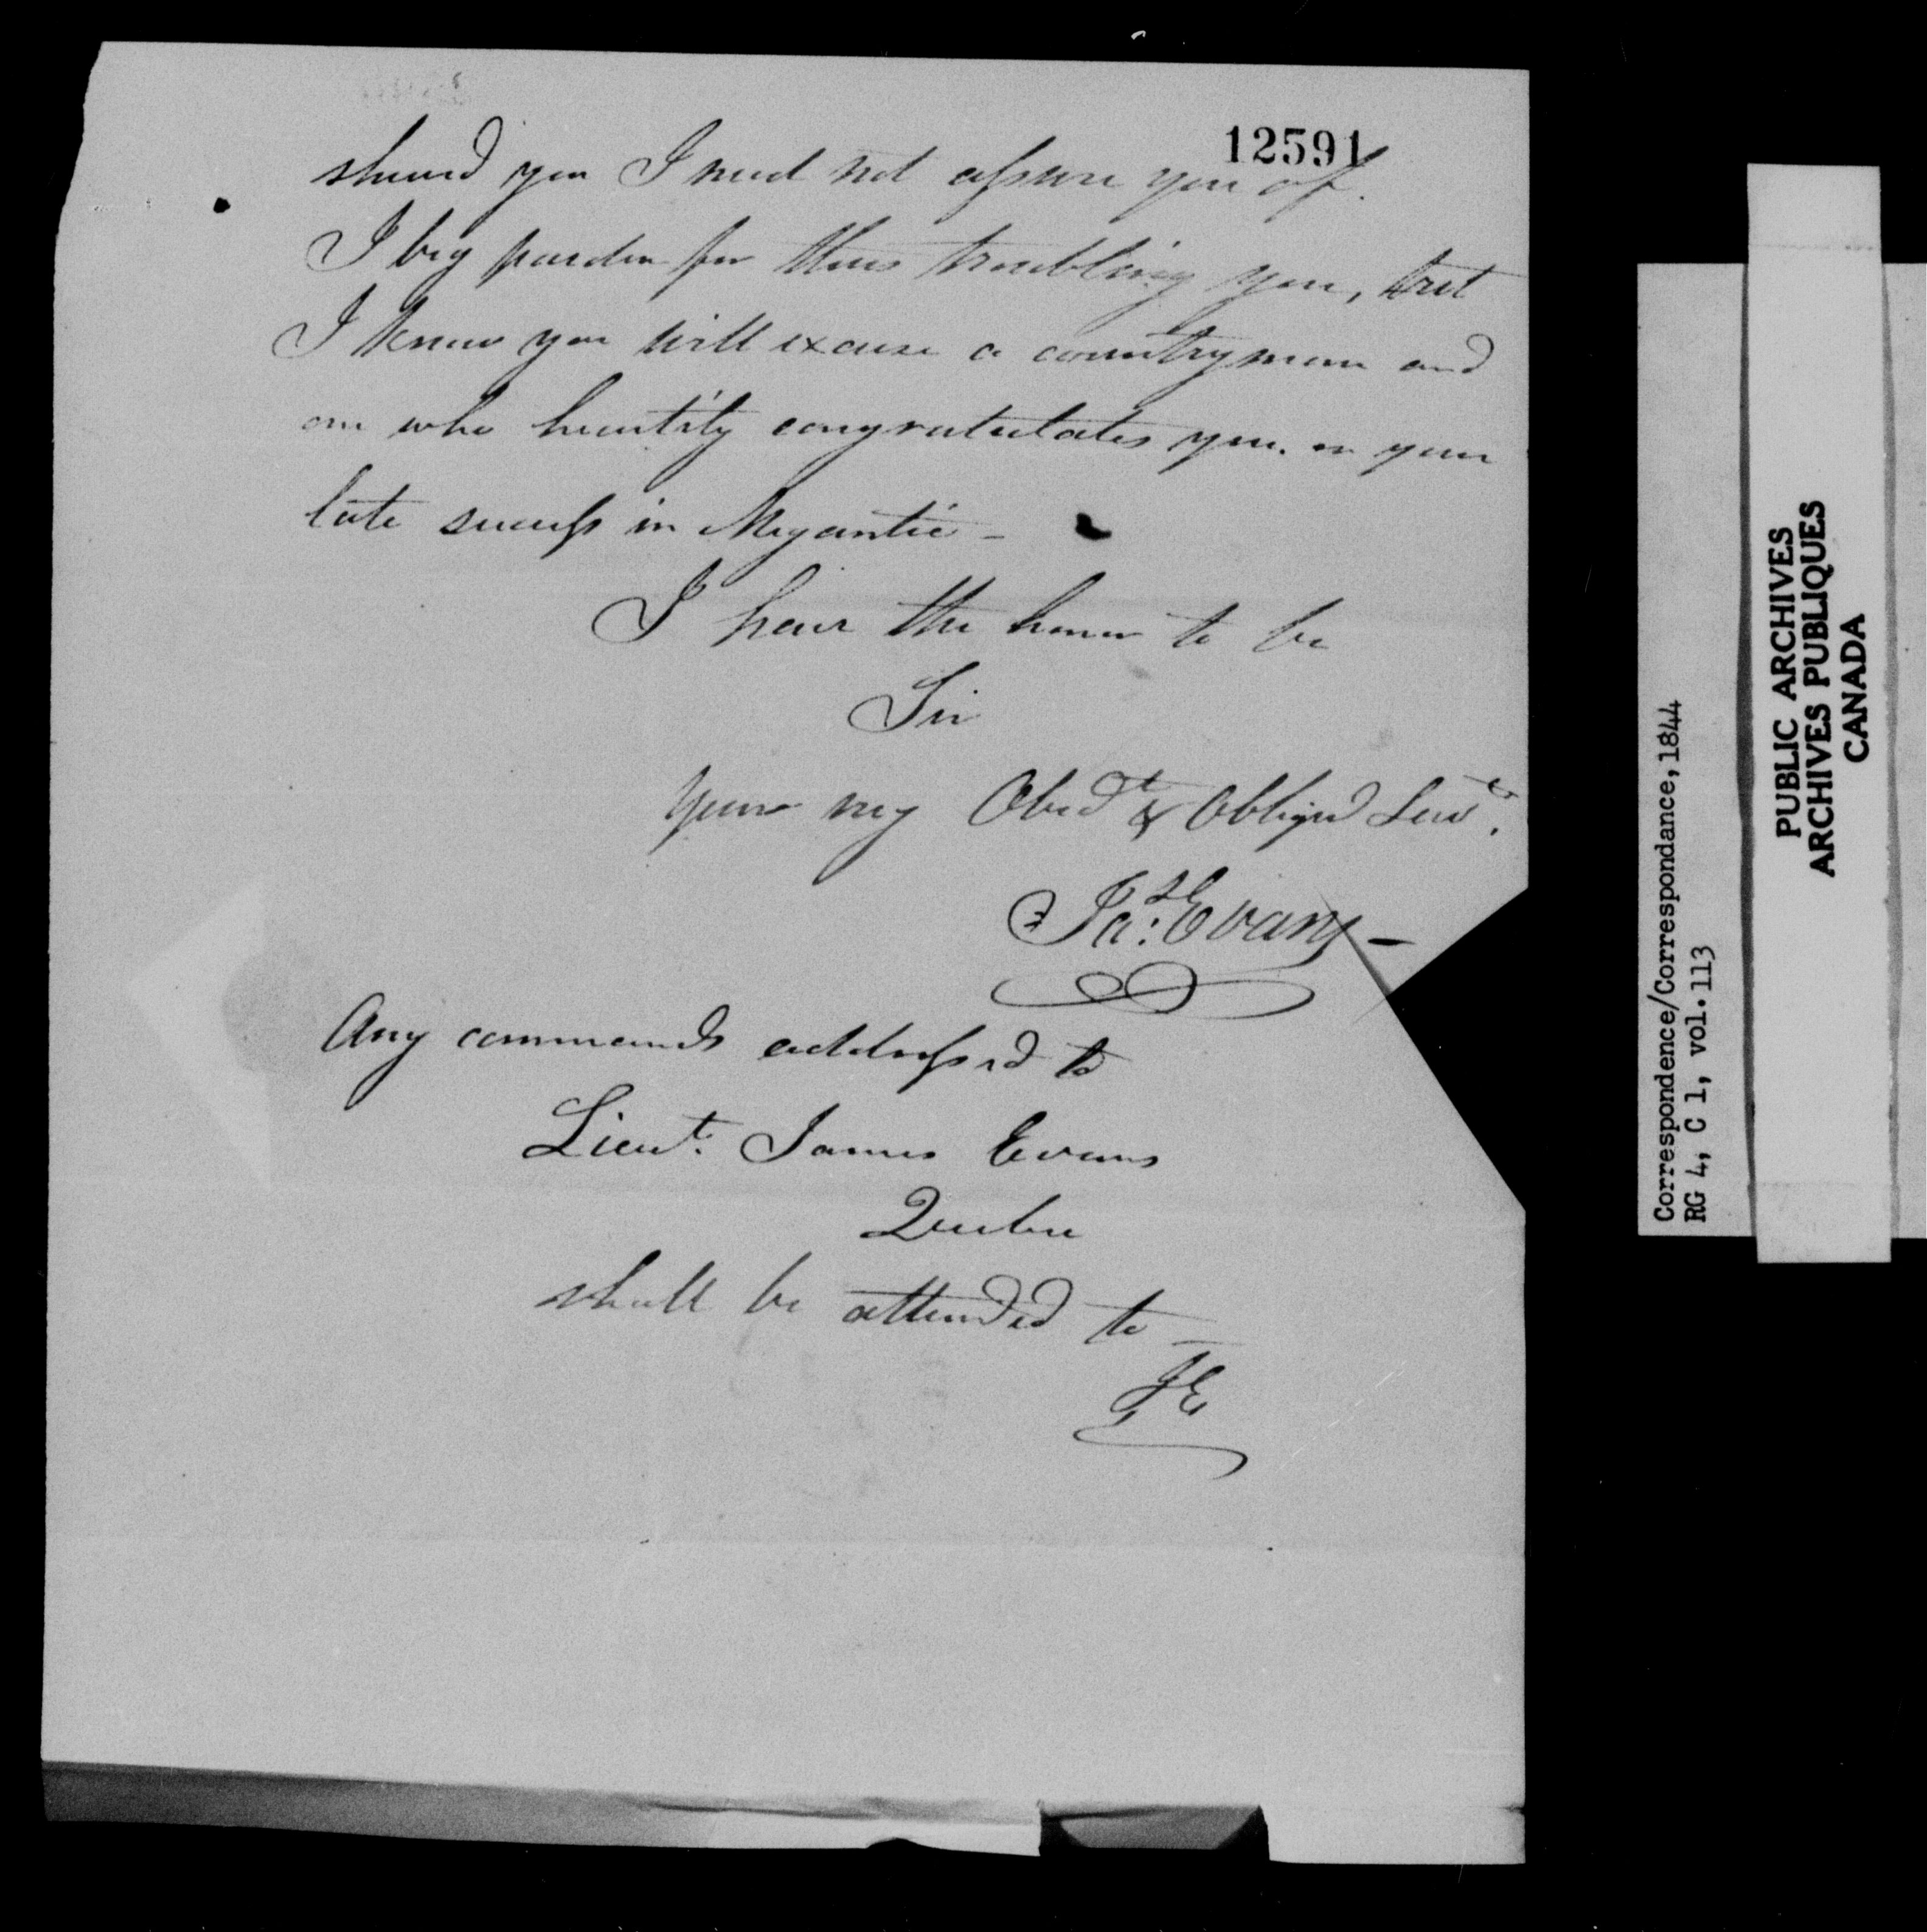 12591
shewed you I need not assure you of.
I beg pardon for thus troubling you, but
I know you will excuse a countryman and
one who heartily congratulates you on your
late success in Megantic -
I have the honor to be
Sir
Your very Obedt & Obliged Servt.
Jas: Evans -
Any commands addressed to
Lieut. James Evans
Quebec
shall be attended to -
JE
Correspondence/Correspondance, 1844
RG 4, C 1, vol. 113
PUBLIC ARCHIVES
ARCHIVES PUBLIQUES
CANADA